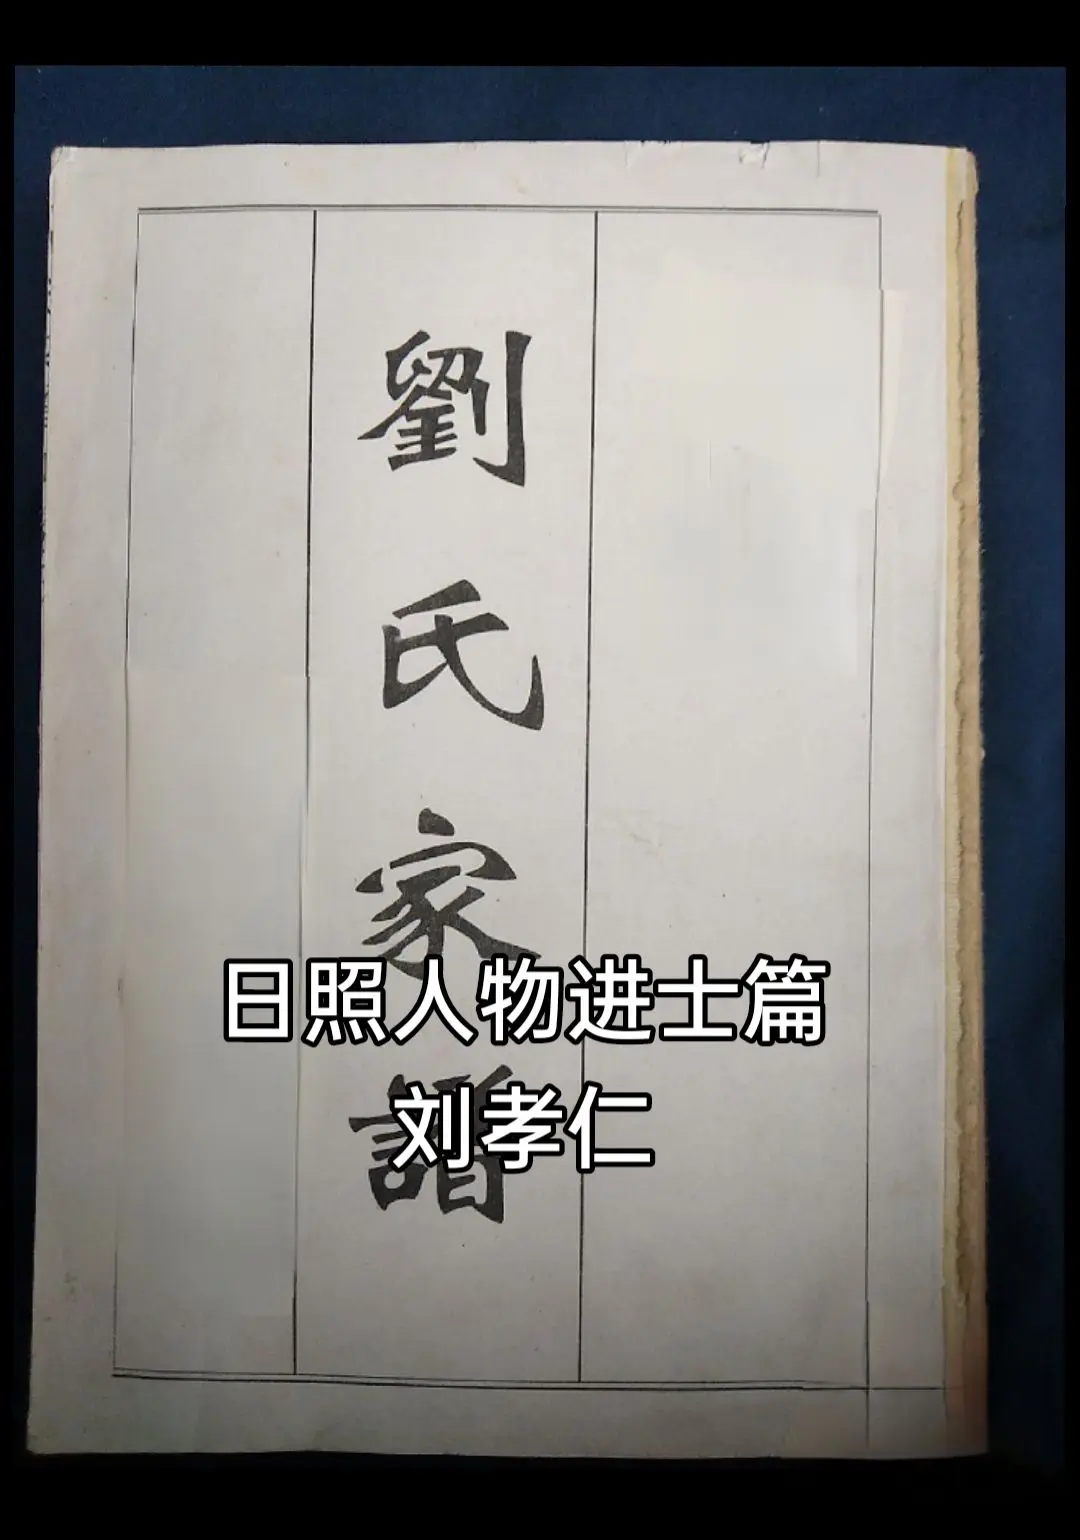 劉氏家譜
日照人物进士篇
刘孝仁